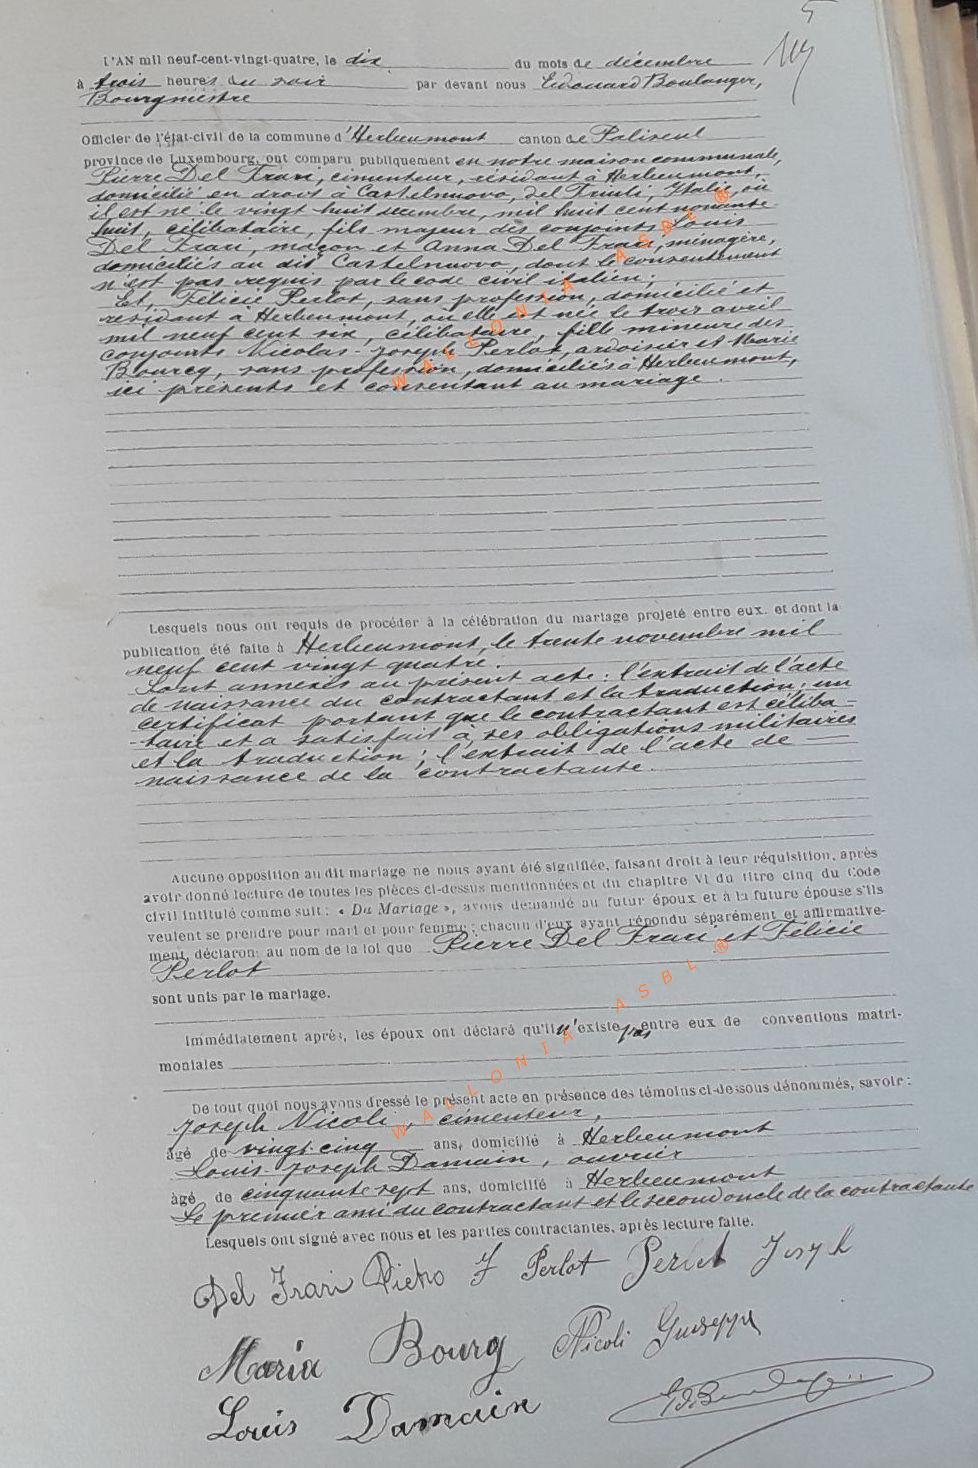 5
L'AN mil neuf-cent-vingt-quatre, le dix du mois de décembre
à trois heures du soir par devant nous Edouard Boulanger,
Bourgmestre
Officier de l'état-civil de la commune d'Herbeumont canton de Paliseul
province de Luxembourg, ont comparu publiquement en notre maison communale,
Pierre Del Frari, cimenteur, résidant à Herbeumont,
domicilié en droit à Castelnuovo, del Friuli, Italie, où
il est né le vingt huit décembre, mil huit cent nonante
huit, célibataire, fils majeur des conjoints Louis
Del Frari, maçon et Anna Del Frari, ménagère,
domiciliés au dit Castelnuovo, dont le consentement
n'est pas requis par le code civil italien;
Et, Félicie Perlot, sans profession, domiciliée et
résidant à Herbeumont, où elle est née le trois avril
mil neuf cent six, célibataire, fille mineure des
conjoints Nicolas-Joseph Perlot, ardoisier et Marie
Bourcq, sans profession, domiciliés à Herbeumont,
ici présents et consentant au mariage.
Lesquels nous ont requis de procéder à la célébration du mariage projeté entre eux. et dont la
publication été faite à Herbeumont, le trente novembre mil
neuf cent vingt quatre.
Sont annexés au présent acte: l'extrait de l'acte
de naissance du contractant et la traduction; un
certificat portant que le contractant est céliba-
-taire et a satisfait à ses obligations militaires
et la traduction; l'extrait de l'acte de
naissance de la contractante.
Aucune opposition au dit mariage ne nous ayant été signifiée, faisant droit à leur réquisition, après
avoir donné lecture de toutes les pièces ci-dessus mentionnées et du chapitre VI du titre cinq du Code
civil intitulé comme suit: « Du Mariage », avons demandé au futur époux et à la future épouse s'ils
veulent se prendre pour mari et pour femme; chacun d'eux ayant répondu séparément et affirmative-
ment, déclarons au nom de la loi que Pierre Del Frari et Félicie
Perlot
sont unis par le mariage.
Immédiatement après, les époux ont déclaré qu'il n'existe pas entre eux de conventions matri-
moniales
De tout quoi nous avons dressé le présent acte en présence des témoins ci-dessous dénommés, savoir:
Joseph Nicoli, cimenteur,
âgé de vingt-cinq ans, domicilié à Herbeumont
Louis-Joseph Damain, ouvrier
âgé de cinquante sept ans, domicilié à Herbeumont
Le premier ami du contractant et le second oncle de la contractante
Lesquels ont signé avec nous et les parties contractantes, après lecture faite.
Del Frari Pietro F Perlot Perlot Joseph
Maria Bourg Nicoli Giuseppe
Louis Damain
WALLONIA ASBL ®
WALLONIA ASBL ®